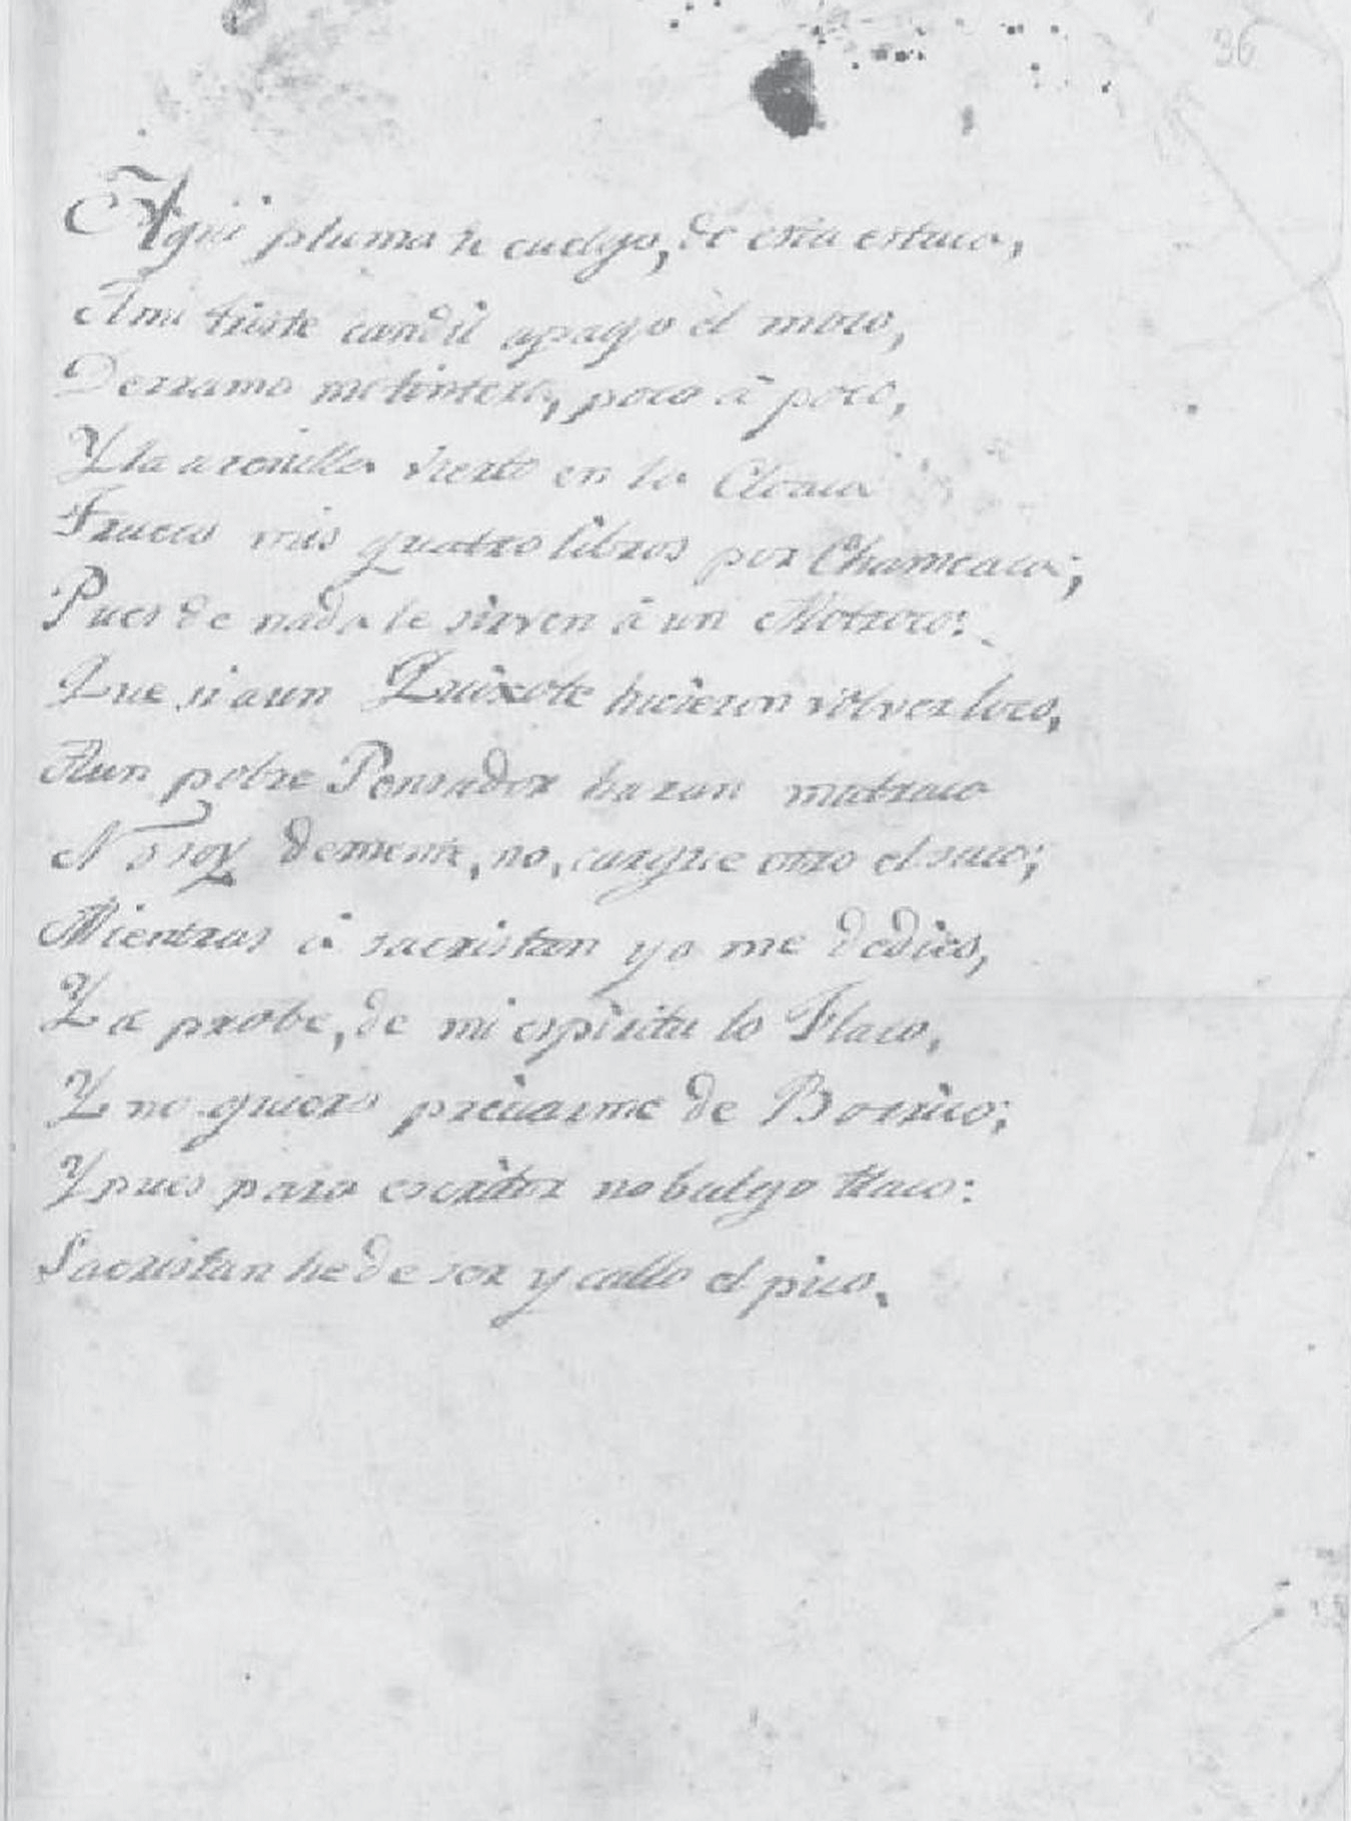 36
Aqui pluma te cuelgo, de esta estaca,
A mi triste candil apago èl moco,
Derramo me tintero, poco â poco,
Y la arenilla vierto en la Cloaca
Trueco mis quatro libros por Chamcaca;
Pues de nada le sirven â un Motroco:
Que si aun Quixote hicieron vôlver loco,
Aun pobre Pensador haran matraca
No soy demente, no, cargue otro el saco;
Mientras â sacristan yo me dedico,
Ya probe, de mi espiritu lo Flaco,
Y no quiero preciarme de Borrico;
Y pues para escritor no balgo tlaco:
Sacristan he de ser y callo el pico.